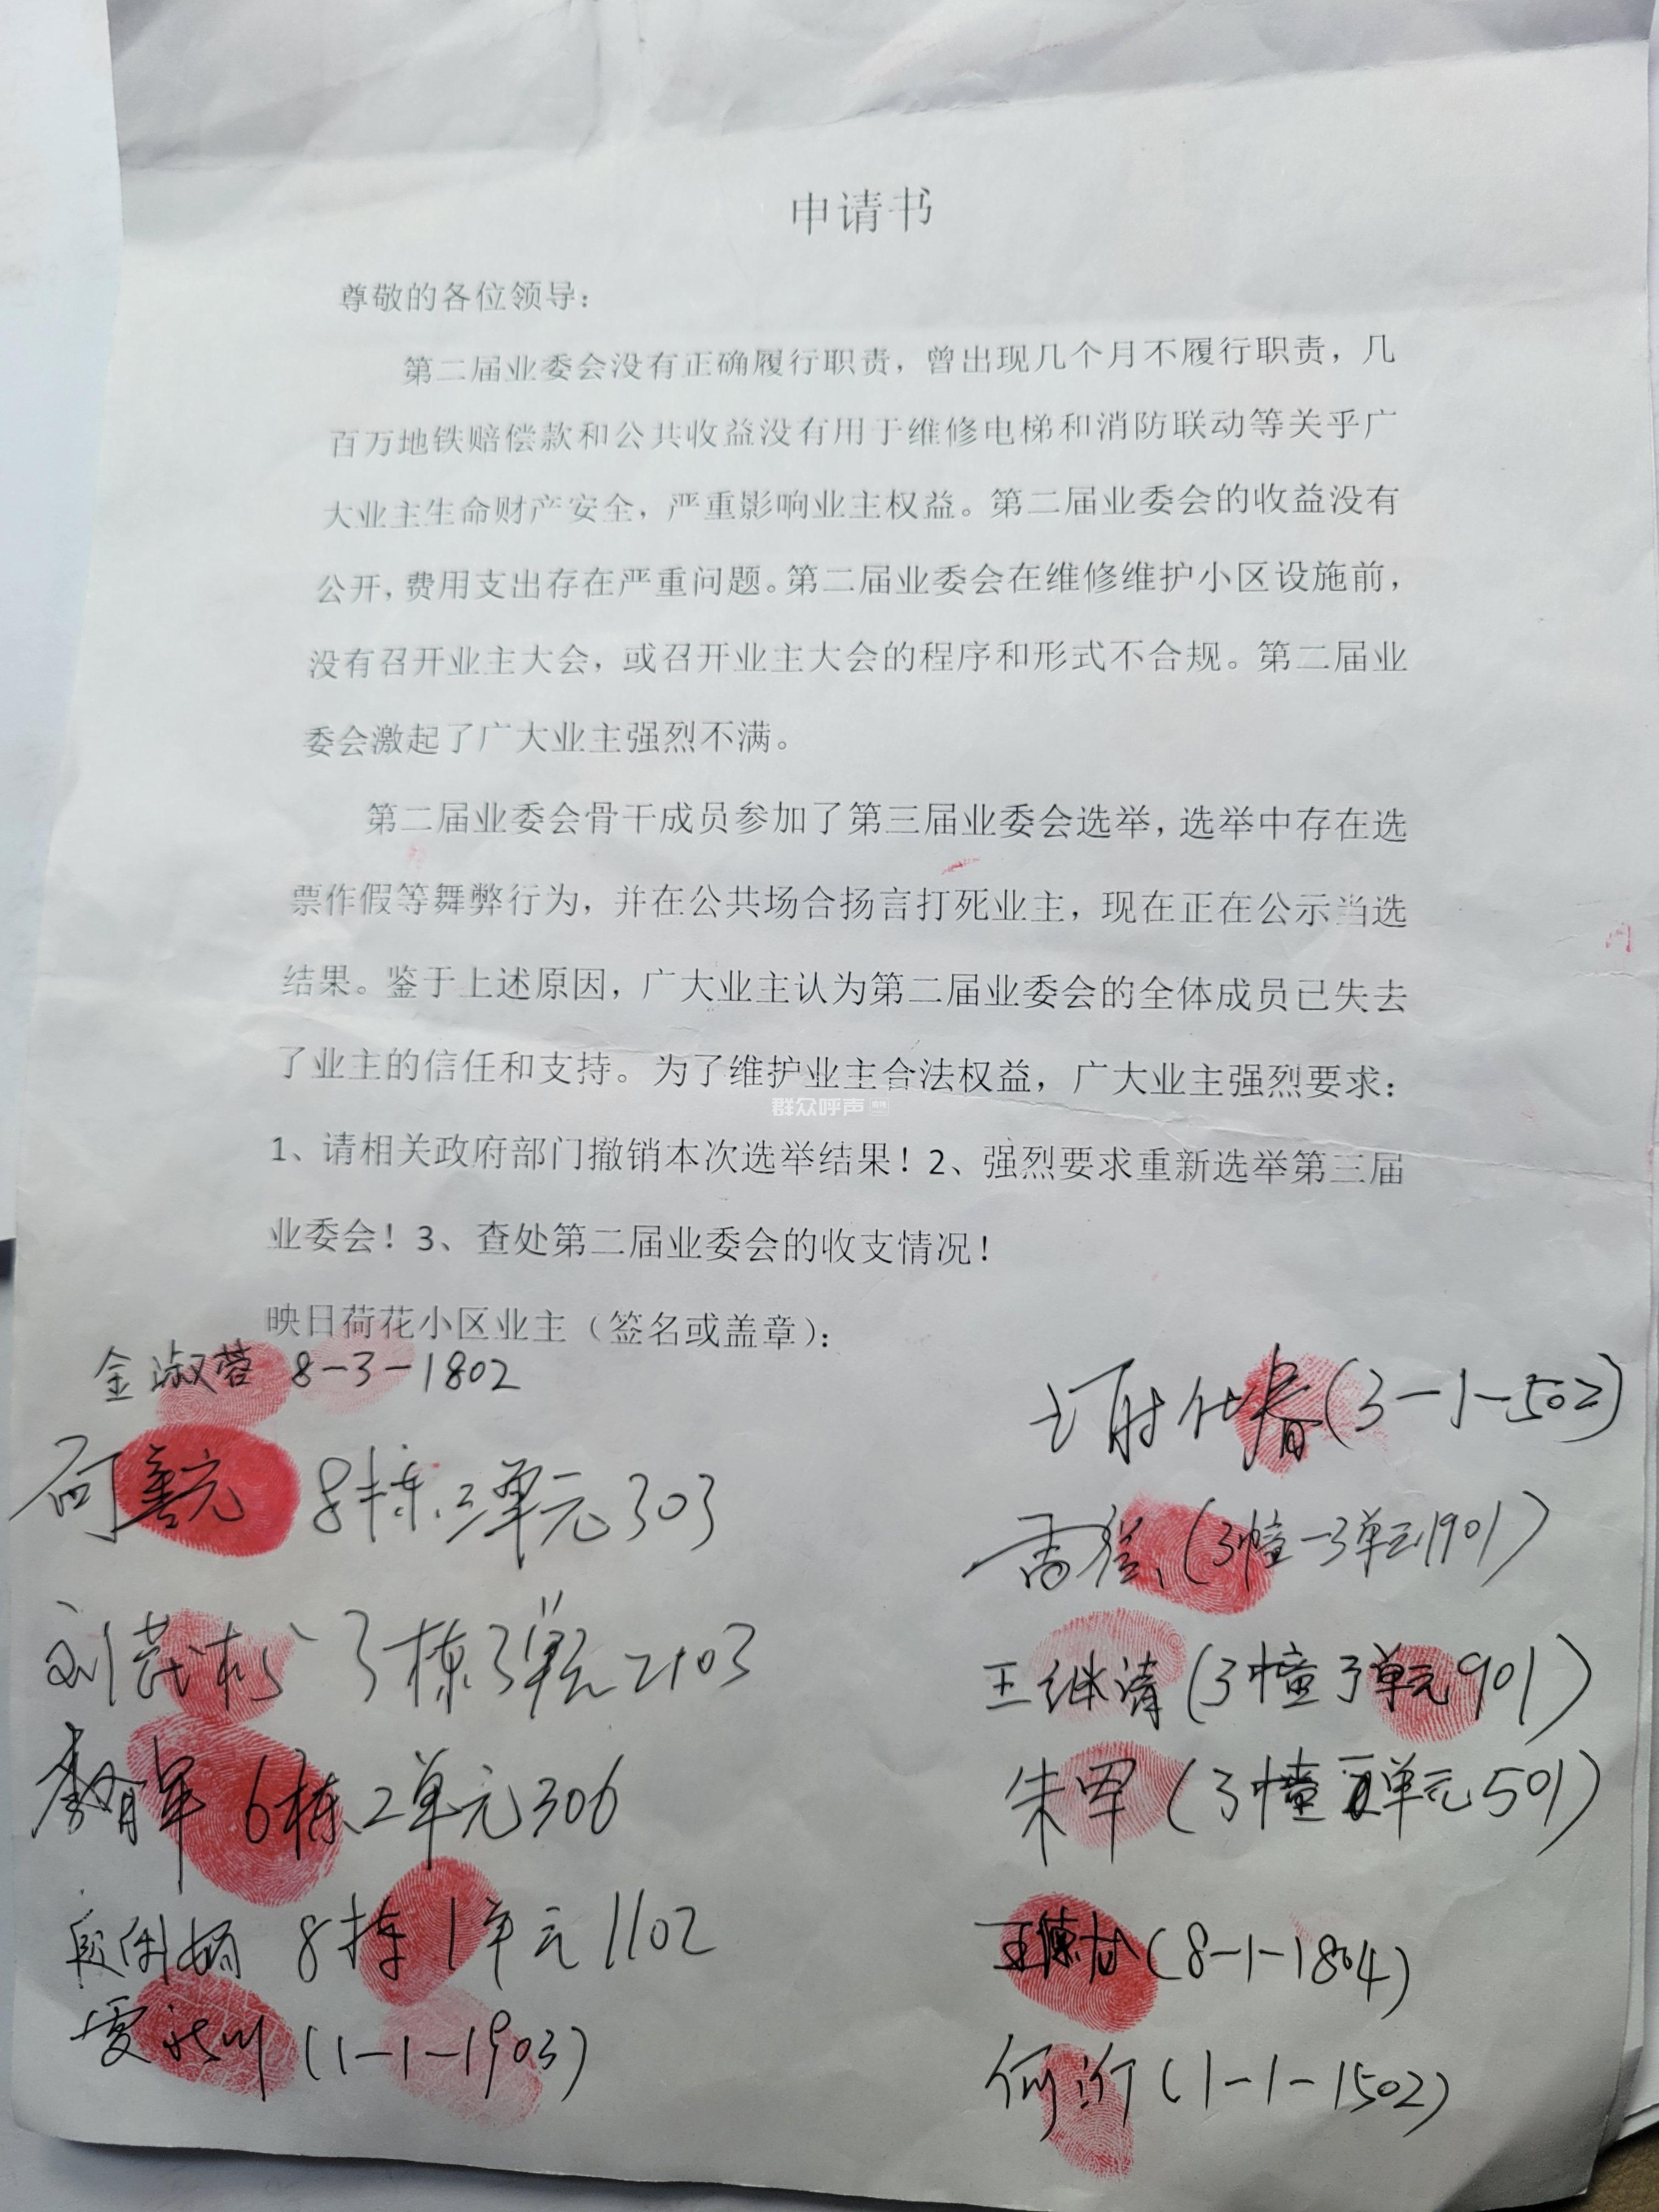 申请书
尊敬的各位领导：
第二届业委会没有正确履行职责，曾出现几个月不履行职责，几
百万地铁赔偿款和公共收益没有用于维修电梯和消防联动等关乎广
大业主生命财产安全，严重影响业主权益。第二届业委会的收益没有
公开，费用支出存在严重问题。第二届业委会在维修维护小区设施前，
没有召开业主大会，或召开业主大会的程序和形式不合规。第二届业
委会激起了广大业主强烈不满。
第二届业委会骨干成员参加了第三届业委会选举，选举中存在选
票作假等舞弊行为，并在公共场合扬言打死业主，现在正在公示当选
结果。鉴于上述原因，广大业主认为第二届业委会的全体成员已失去
了业主的信任和支持。为了维护业主合法权益，广大业主强烈要求：
群众呼声
1、请相关政府部门撤销本次选举结果！2、强烈要求重新选举第三届
业委会！3、查处第二届业委会的收支情况！
映日荷花小区业主（签名或盖章）：
金淑蓉 8-3-1802
(3-1-502)
何善元 8栋三单元303
(3幢-3单元1901)
刘 3栋3单元2103
王继清 (3幢3单元901)
6栋2单元306
朱军 (3幢 单元501)
段 8栋1单元1102
王德 (8-1-1804)
(1-1-1903)
何 (1-1-1502)